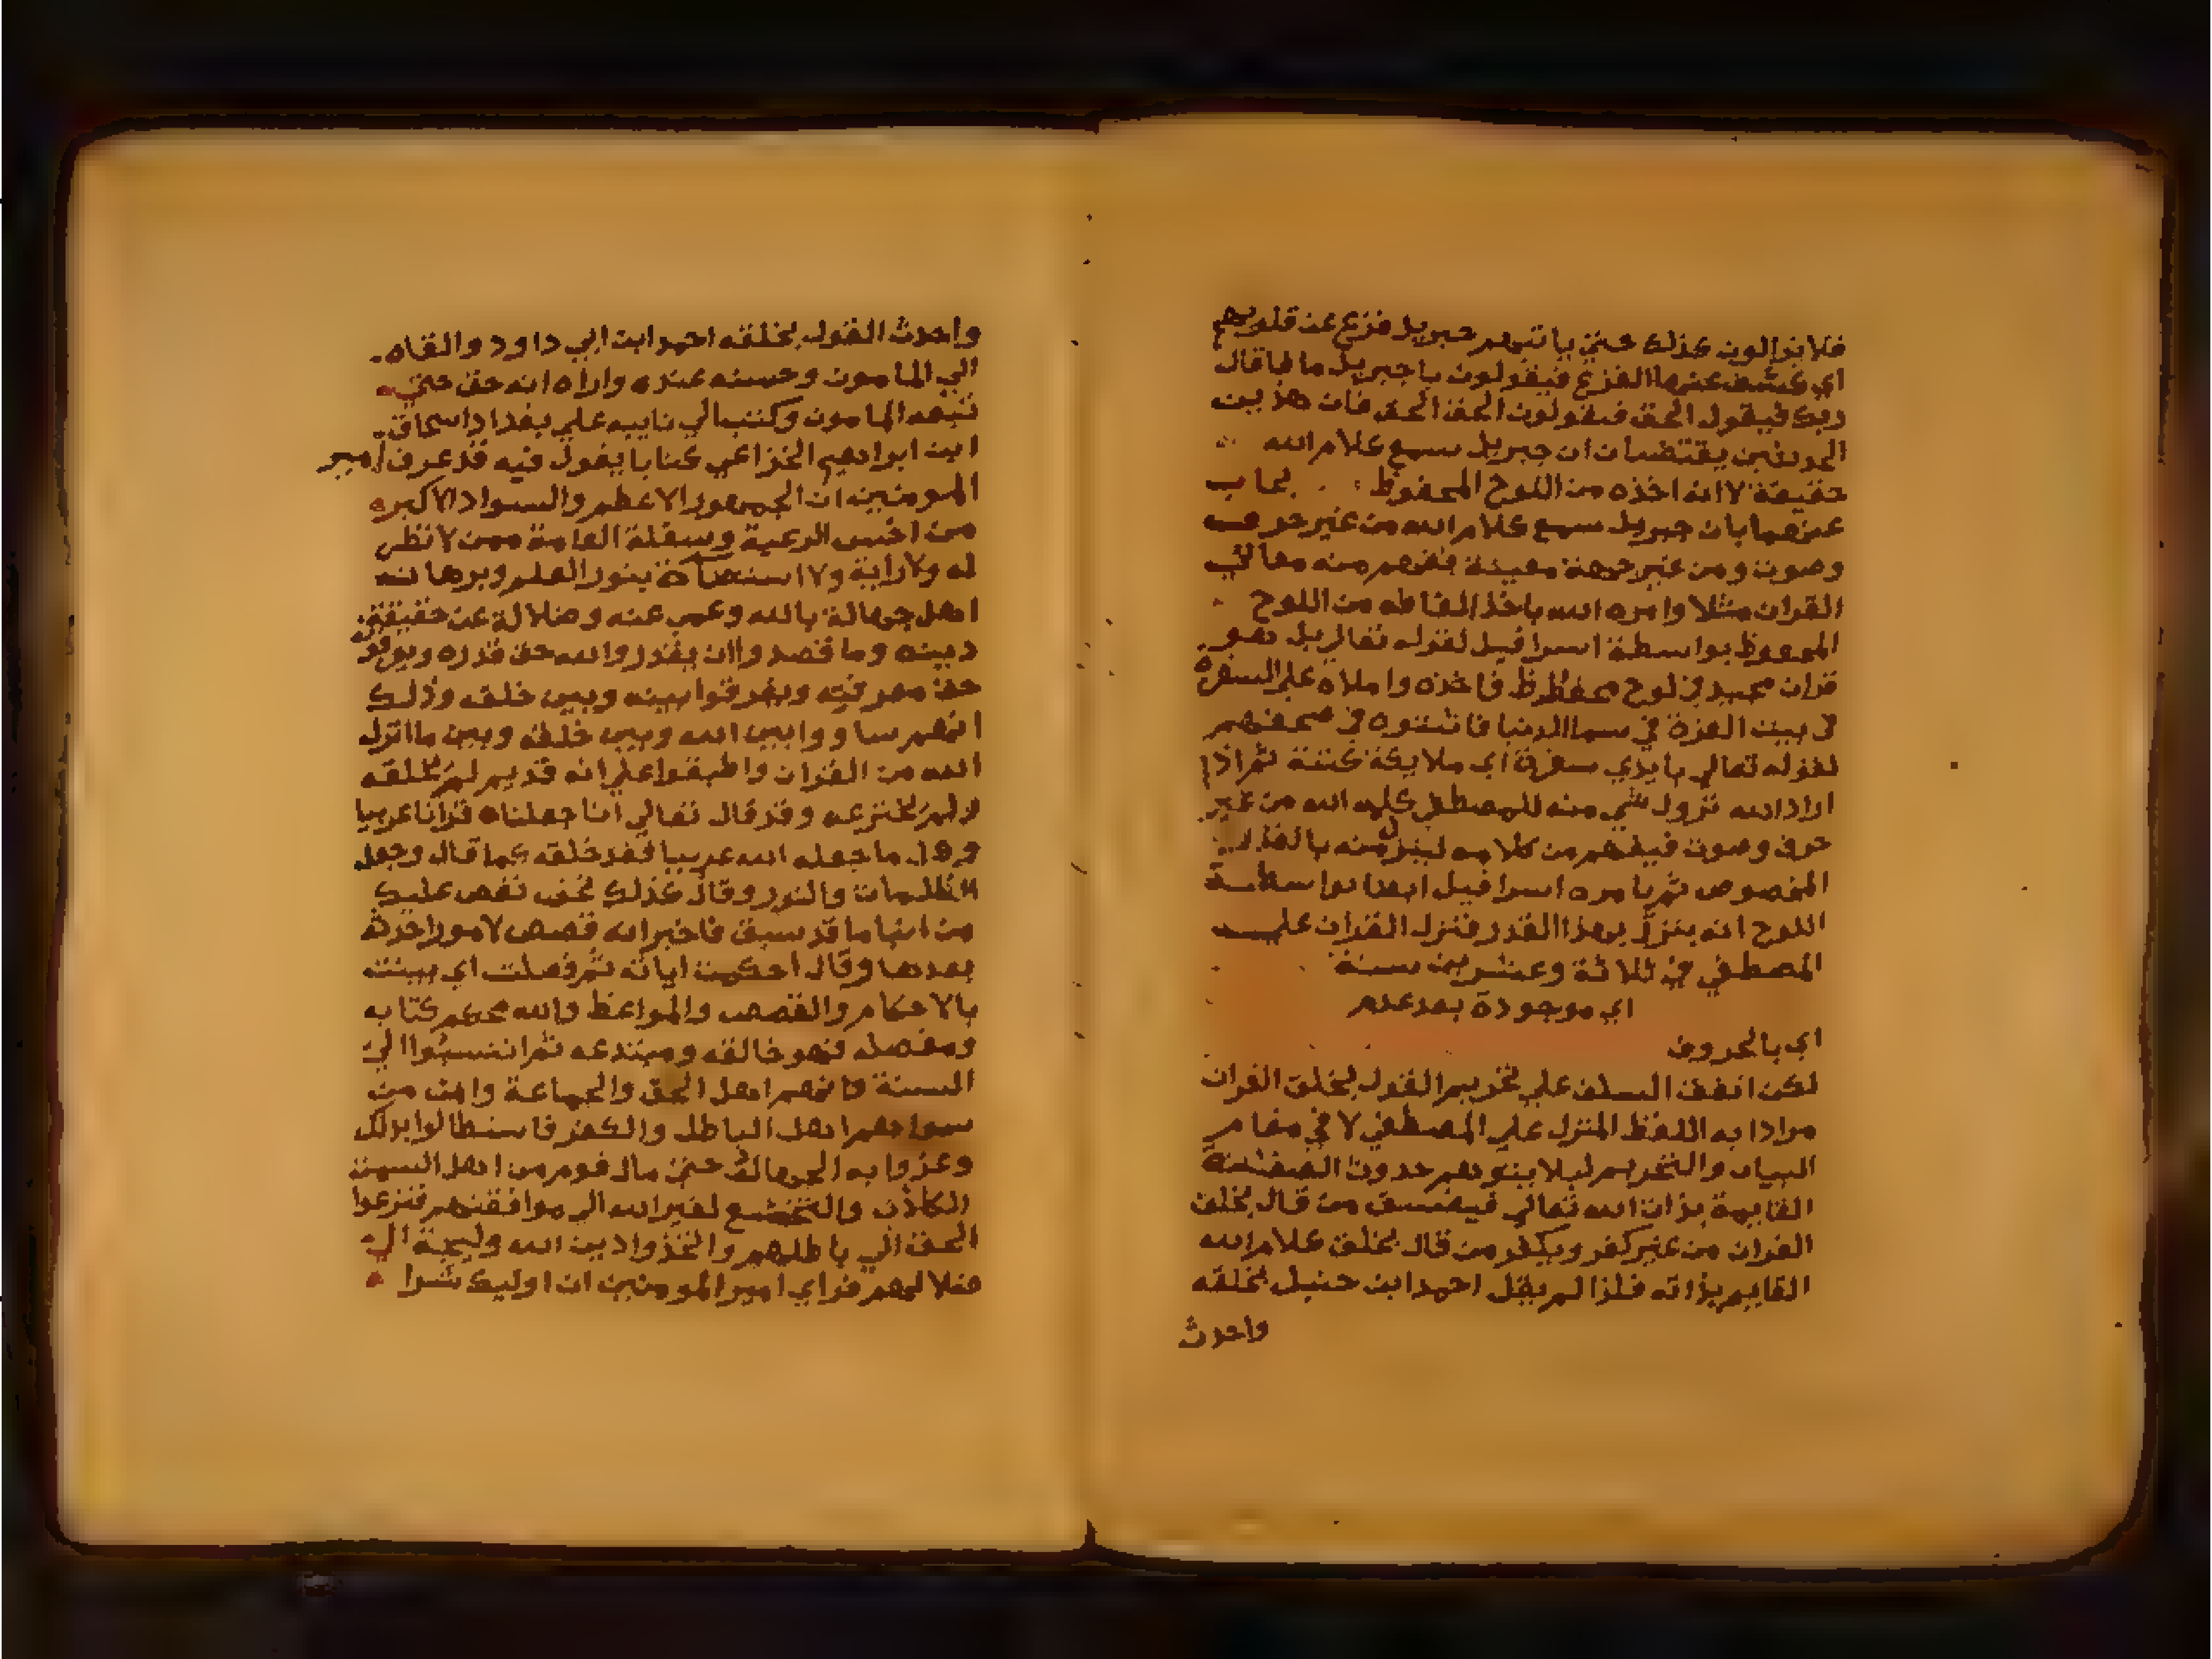 فلا يزالون كذلك حتي ياتيهم جبريل فزع عن قلوبهم
اي كشف عنها الفزع فيقولون يا جبريل ماذا قال
ربك فيقول الحق فيقولون الحق الحق فان هذين
الحديثين يقتضيان ان جبريل سمع كلام الله
حقيقة لا انه اخذه من اللوح المحفوظ يجاب
عنهما بان جبريل سمع كلام الله من غير حرف
وصوت ومن غير جهة معينة ففهم منه معاني
القران مثلا وامره الله باخذ الفاظه من اللوح
المحفوظ بواسطة اسرافيل لقوله تعالي بل هو
قران مجيد في لوح محفوظ فاخذه واملاه علي السفرة
في بيت العزة في سما الدنيا فاثبتوه في صحفهم
لقوله تعالي بايدي سفرة اي ملايكة كتبة ثم اذا
اراد الله نزول شي منه للمصطفي كلمه الله من غير
حرف وصوت فيفهم من كلامه لينزل منه بالقدر
المخصوص ثم يامره اسرافيل ايضا بواسطة
اللوح انه ينزل بهذا القدر فنزل القران علي
المصطفي في ثلاثة وعشرين سنة
اي موجودة بعد عدم
اي بالحروف
لكن اتفق السلف علي تحريم القول بخلق القران
مرادا به اللفظ المنزل علي المصطفي لا في مقام
البيان والتحريم ليلا يتوهم حدوث الصفة
القايمة بذات الله تعالي فيفسق من قال بخلق
القران من غير كفر ويكفر من قال بخلق كلام الله
القايم بذاته فلذا لم يقل احمد ابن حنبل بخلقه
واحدث
واحدث القول بخلقه احمد ابن ابي داود والقاه
الي المامون وحسنه عنده واراه انه حق حتي
تبعه المامون وكتب الي نايبه علي بغداد اسحاق
ابن ابراهيم الخزاعي كتابا يقول فيه قد عرف امير
المومنين ان الجمهور الاعظم والسواد الاكبر
من اخس الرعية وسفلة العامة ممن لا نظر
له ولا راية ولا استضآة بنور العلم وبرهانه
اهل جهالة بالله وعمي عنه وضلالة عن حقيقة
دينه وما قصدوا ان يقدروا الله حق قدره
حق معرفته ويفرقوا بينه وبين خلقه وذلك
انهم ساووا بين الله وبين خلقه وبين ما انزل
الله من القران واطبقوا علي انه قديم لم يخلقه
ولم يخترعه وقد قال تعالي انا جعلناه قرانا عربيا
وكل ما جعله الله عربيا فقد خلقه كما قال وجعل
الظلمات والنور وقال كذلك نحن نقص عليك
من انبا ما قد سبق فاخبر انه قصص لامور احدث
بعدها وقال احكمت اياته ثم فصلت اي بينت
بالاحكام والقصص والمواعظ والله محكم كتابه
ومفصله فهو خالقه ومبتدعه ثم انتسبوا الي
السنة فانهم اهل الحق والجماعة وان من
سواهم اهل الباطل والكفر فاستطالوا بذلك
وغروا به الجهالة حتي مال قوم من اهل السمت
الكاذب والتخشع لغير الله الي موافقتهم فنزعوا
الحق الي باطلهم واتخذوا دين الله وليجة الي
ضلالهم فراي امير المومنين ان اوليك شر